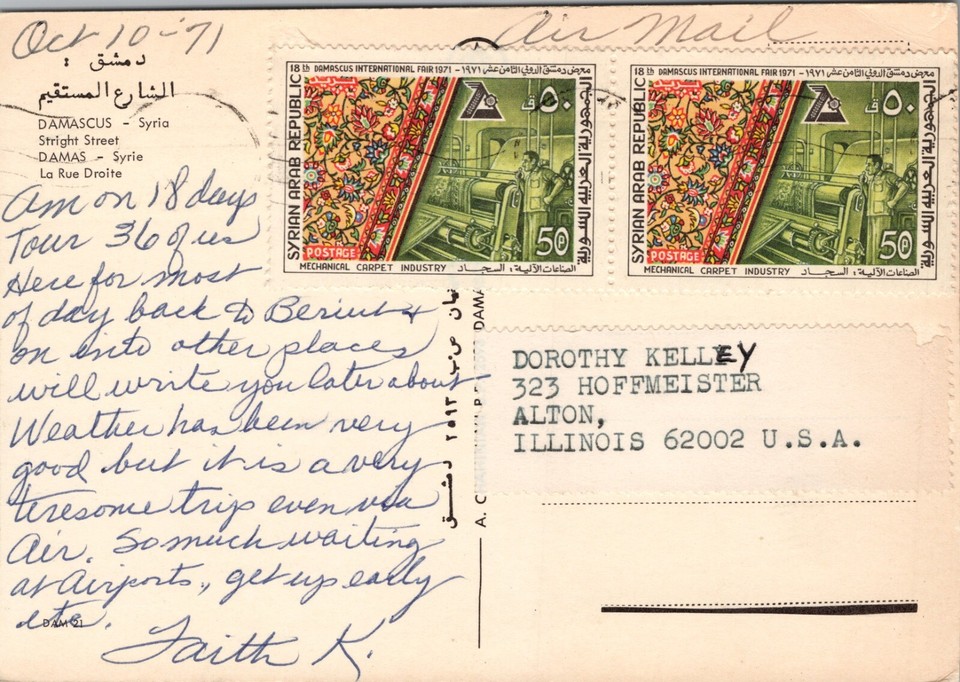 Oct 10-71
Air Mail
دمشق :
الشارع المستقيم
DAMASCUS - Syria
Stright Street
DAMAS - Syrie
La Rue Droite
Am on 18 days
Tour 36 of us
Here for most
of day back to Beriut &
on into other places
will write you later about
Weather has been very
good but it is a very
teresome trip even via
Air. So much waiting
at Airports., get up early
etc.
Faith K.
DAM 21
18th DAMASCUS INTERNATIONAL FAIR 1971 - معرض دمشق الدولي الثامن عشر ١٩٧١
SYRIAN ARAB REPUBLIC
الجمهورية العربية السورية
٥٠ ق
POSTAGE
50 P
MECHANICAL CARPET INDUSTRY الصناعات الآلية: السجاد
18th DAMASCUS INTERNATIONAL FAIR 1971 - معرض دمشق الدولي الثامن عشر ١٩٧١
SYRIAN ARAB REPUBLIC
الجمهورية العربية السورية
٥٠ ق
POSTAGE
50 P
MECHANICAL CARPET INDUSTRY الصناعات الآلية: السجاد
DOROTHY KELLEY
323 HOFFMEISTER
ALTON,
ILLINOIS 62002 U.S.A.
ص.ب ٢٥٩٢ دمشق
A.
DAMA